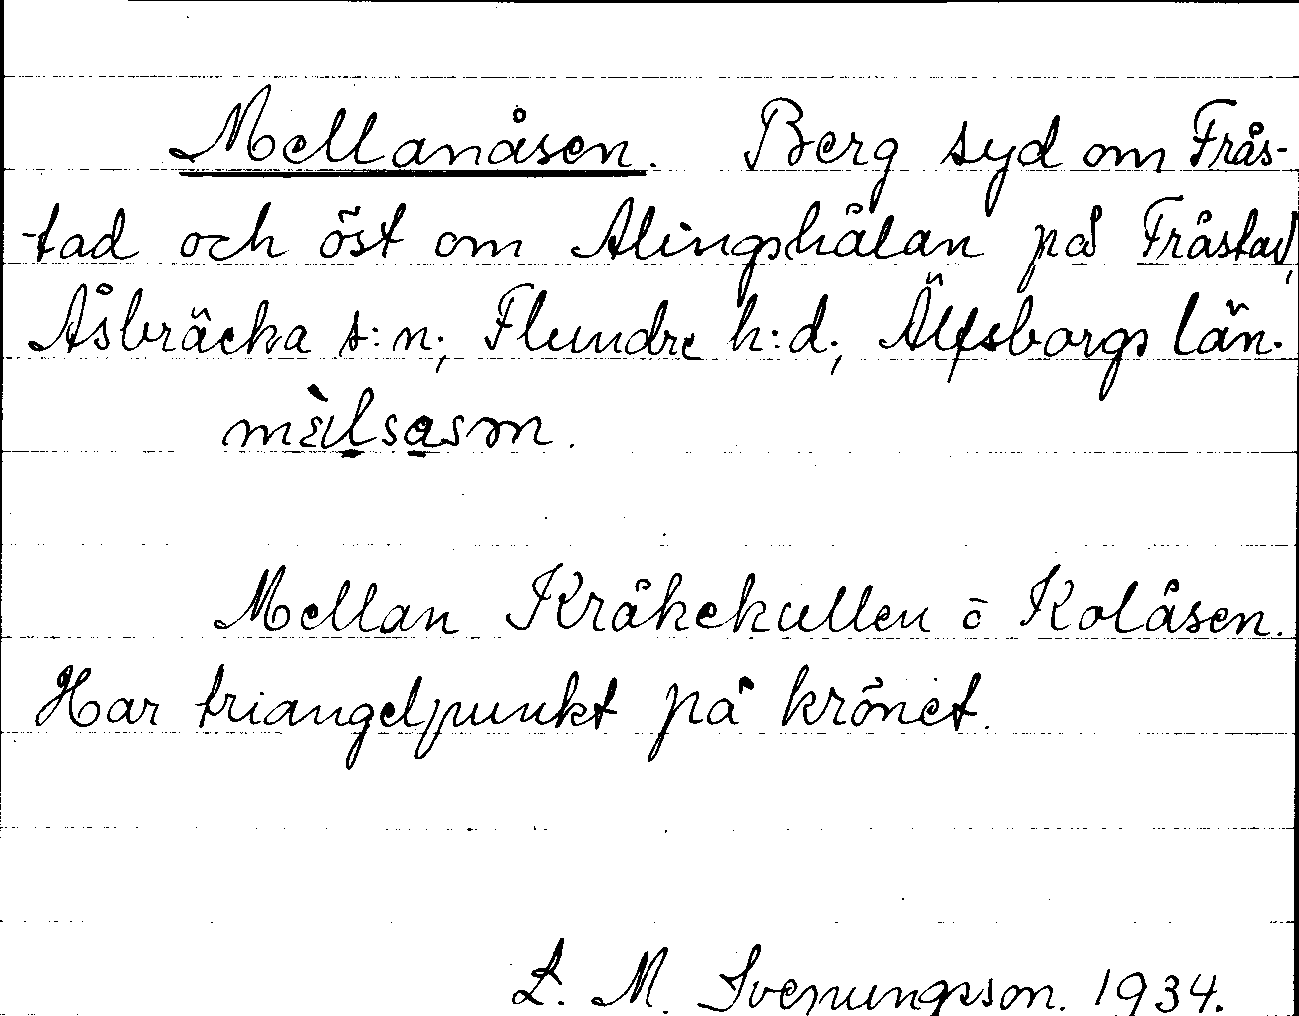 Mellanåsen. Berg syd om Frås-
tad och öst om Alingshålan på Fråstad,
Åsbräcka s:n; Flundre h:d; Älfsborgs län.
Mellan Kråkekullen o Kolåsen.
Har triangelpunkt på krönet.
L. M. Svenungsson. 1934.